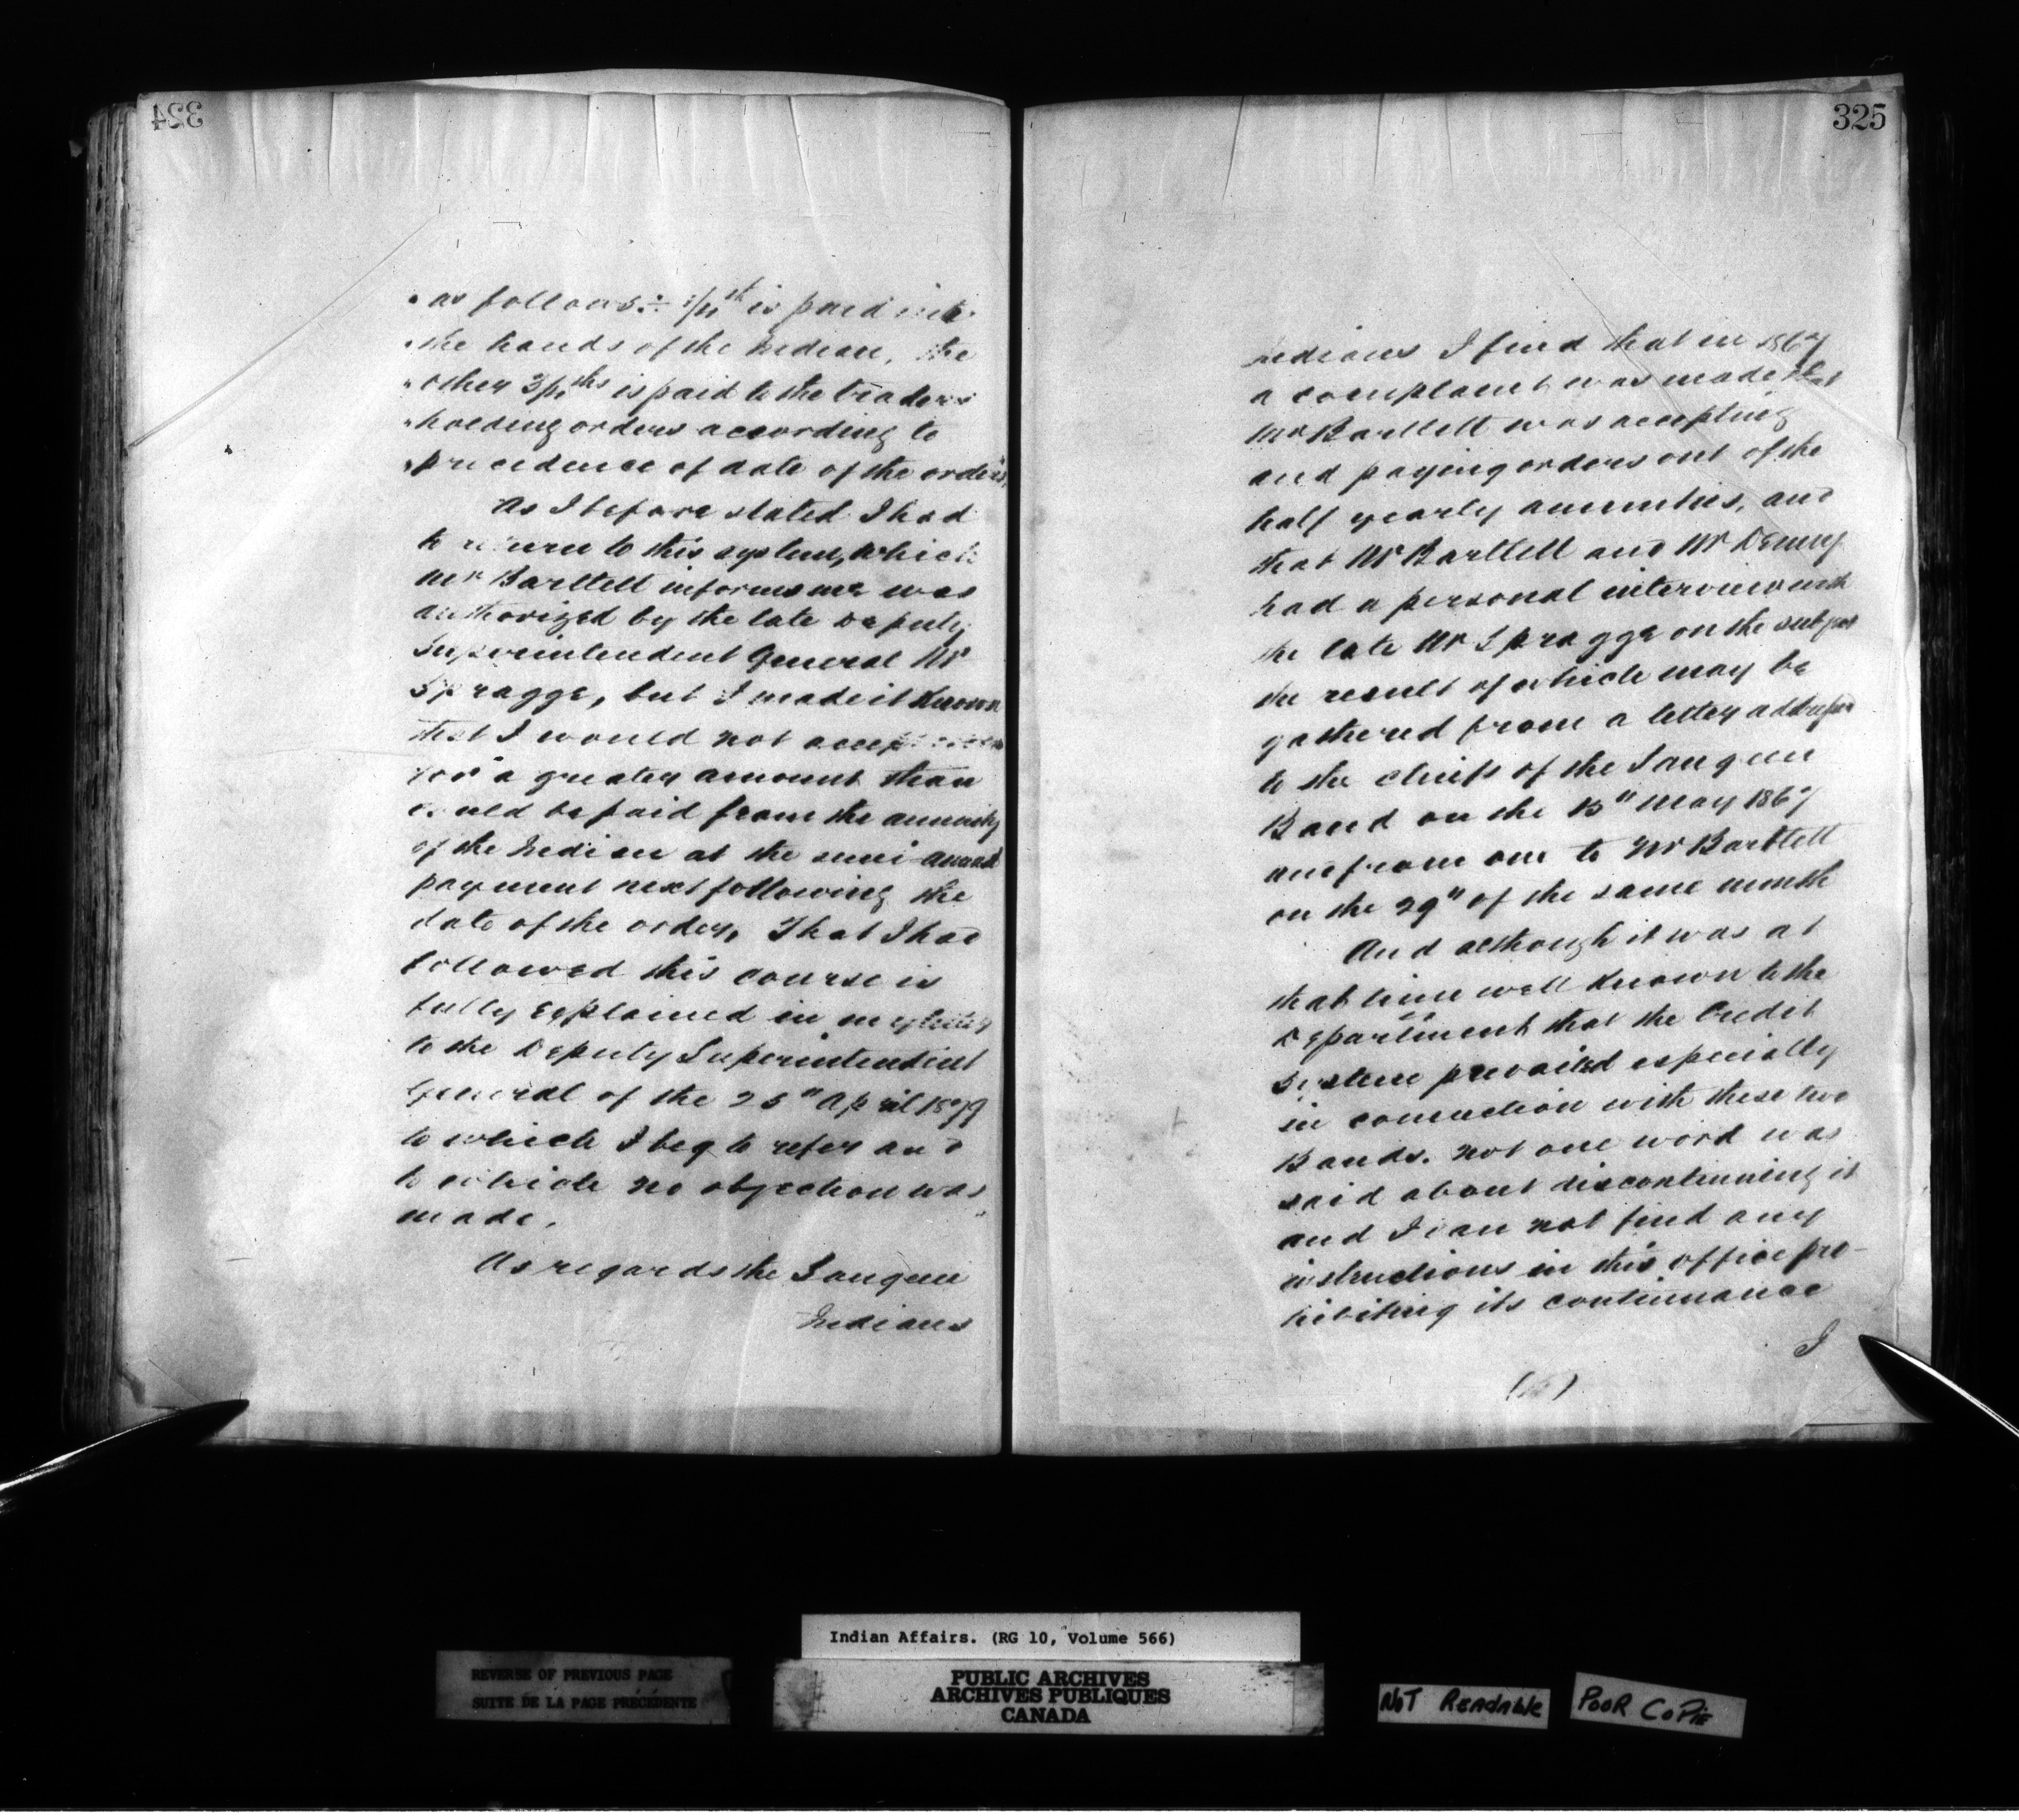 324
"as follows:- 1/4th is paid into
"the hands of the Indian, the
"other 3/4ths is paid to the traders
"holding orders according to
"precedence of date of the orders,
As I before stated I had
to return to this system, which
Mr Bartlett informs me was
authorized by the late Deputy
Superintendent General Mr
Spragge, but I made it known
that I would not accept
for a greater amount than
could be paid from the annuity
of the Indian at the semi-annual
payment next following the
date of the order, That I had
followed this course is
fully explained in my letter
to the Deputy Superintendent
General of the 25" April 1879
to which I beg to refer and
to which no objection was
made.
As regards the Saugeen
Indians
325
Indians I find that in 1867
a complaint was made that
Mr Bartlett was accepting
and paying orders out of the
half yearly annuities, and
that Mr Bartlett and Mr Denny
had a personal interview with
the late Mr Spragge on the subject
the result of which may be
gathered from a letter addressed
to the chiefs of the Saugeen
Band on the 15" May 1867
and from one to Mr Bartlett
on the 29" of the same month
And although it was at
that time well known to the
Department that the Credit
System prevailed especially
in connection with these two
Bands. not one word was
said about discontinuing it
and I can not find any
instructions in this office pro-
hibiting its continuance
I
Indian Affairs. (RG 10, Volume 566)
REVERSE OF PREVIOUS PAGE
SUITE DE LA PAGE PRÉCÉDENTE
PUBLIC ARCHIVES
ARCHIVES PUBLIQUES
CANADA
NOT READABLE
POOR COPIE